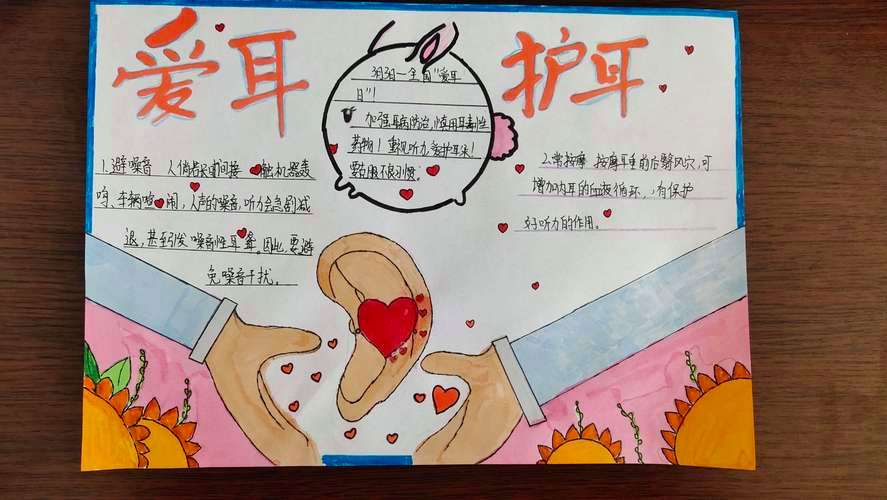 爱耳
护耳
3月3日—全国“爱耳
日”！
加强耳病防治，慎用耳毒性
药物！重视听力，爱护耳朵！
要克服不良习惯。
1.避噪音 人倘若长时间接触机器轰
鸣、车辆喧闹，人声的噪音，听力会急剧减
退，甚至引发噪音性耳聋。因此，要避
免噪音干扰。
2.常按摩 按摩耳垂前后翳风穴，可
增加内耳的血液循环，有保护
好听力的作用。